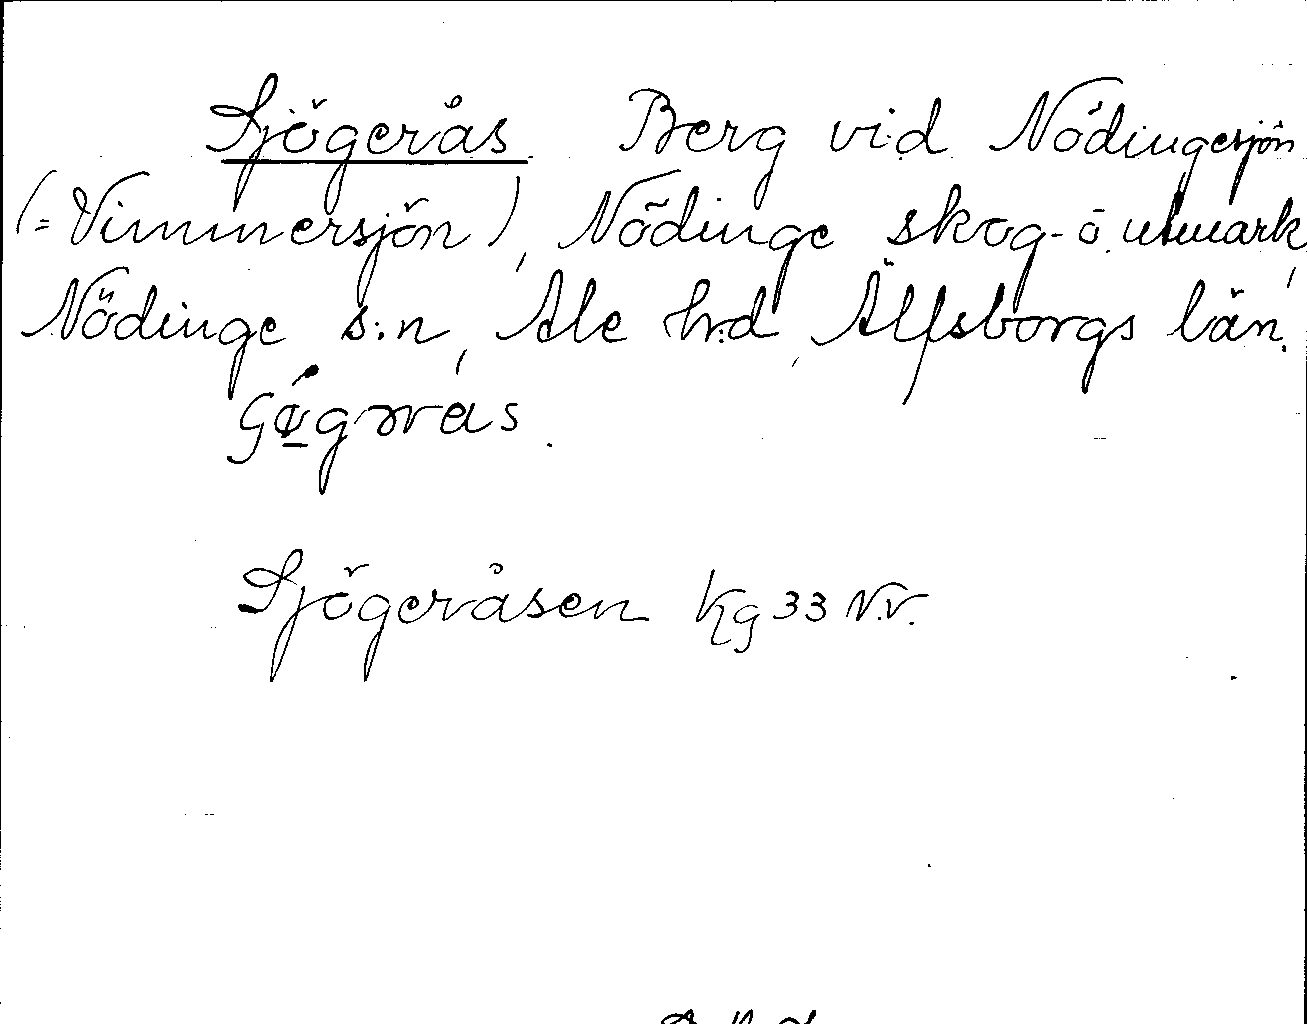 Sjögerås. Berg vid Nödingesjön
(= Vimmersjön), Nödinge skog- o. utmark,
Nödinge s:n, Ale h:d, Älfsborgs län.
Sjögeråsen Kg 33 N.V.